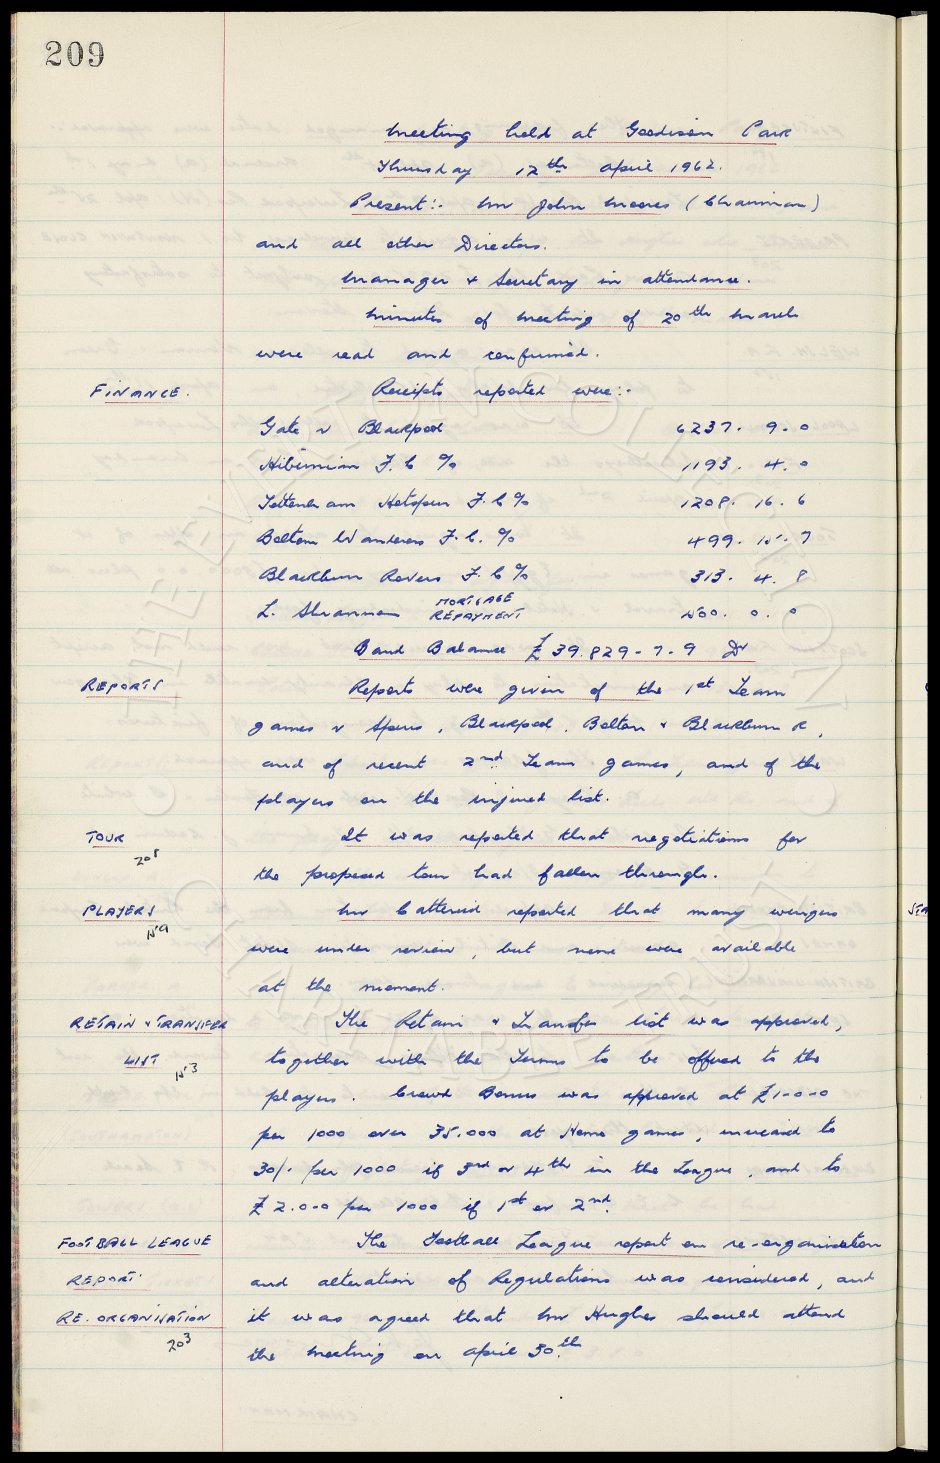 209
Meeting held at Goodison Park
Thursday 12th April 1962.
Present:- Mr John Moores (Chairman)
and all other Directors.
Manager & Secretary in attendance.
Minutes of Meeting of 20th March
were read and confirmed.
FINANCE. Receipts reported were:-
Gate v Blackpool 6237. 9. 0
Hibernian F.C % 1193. 4. 0
Tottenham Hotspur F.C % 1208. 16. 6
Bolton Wanderers F.C. % 499. 15. 7
Blackburn Rovers F.C % 313. 4. 8
L. Shannon MORTGAGE REPAYMENT 500. 0. 0
Bank Balance £39.829-7-9 Dr
REPORTS Reports were given of the 1st Team
games v Spurs, Blackpool, Bolton & Blackburn R,
and of recent 2nd Team games, and of the
players on the injured list.
TOUR It was reported that negotiations for
208 the proposed tour had fallen through.
PLAYERS Mr Catterick reported that many wingers
159 were under review, but none were available
at the moment.
RETAIN & TRANSFER The Retain & Transfer list was approved,
LIST together with the Terms to be offered to the
153 players. Crowd Bonus was approved at £1-0-0
per 1000 over 35.000 at Home games, increased to
30/- per 1000 if 3rd or 4th in the League, and to
£2.0-0 per 1000 if 1st or 2nd.
FOOTBALL LEAGUE The Football League report on re-organisation
REPORT and alteration of Regulations was considered, and
RE. ORGANISATION it was agreed that Mr Hughes should attend
203 the Meeting on April 30th.
THE EVERTON COLLECTION
CHARITABLE TRUST